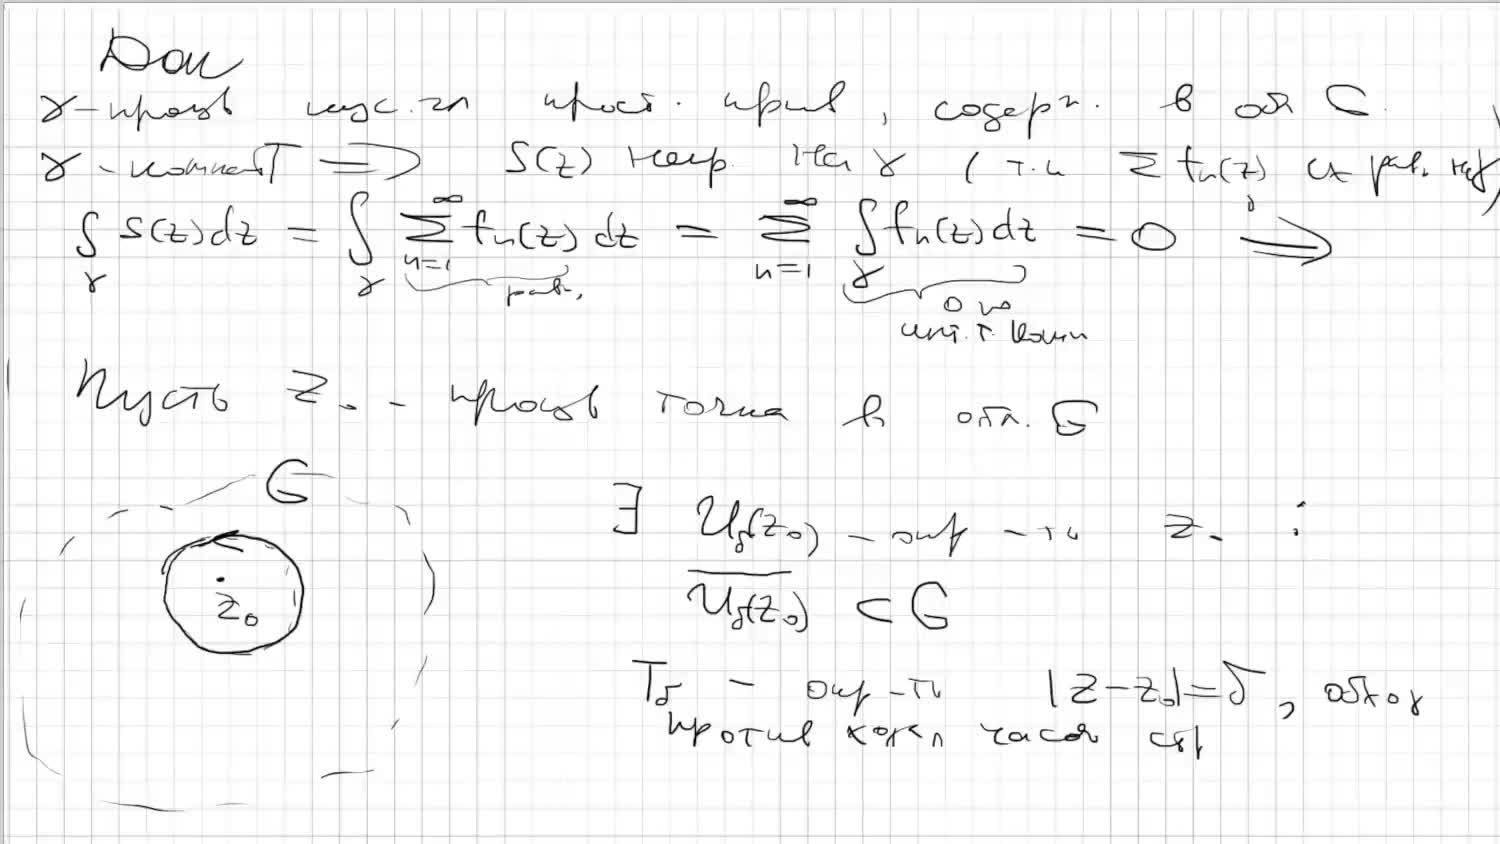 Док
γ - произв кус. гл прост. крив, содерж. в обл G
γ - компакт ⟹ S(z) непр. на γ (т.к Σ fₙ(z) сх рав. на γ)
∫_γ S(z)dz = ∫_γ Σ_{n=1}^∞ fₙ(z) dz = Σ_{n=1}^∞ ∫_γ fₙ(z)dz = 0 ⟹
рав.
0 по
инт. т. Коши
Пусть z₀ - произв точка в обл. G
G
z₀
∃ U_δ(z₀) - окр-ть z₀ :
\overline{U_δ(z₀)} ⊂ G
T_δ - окр-ть |z-z₀|=δ, обход
против часов стр